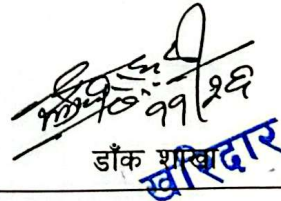 ११/२६
डाँक शाखा
खरिदार